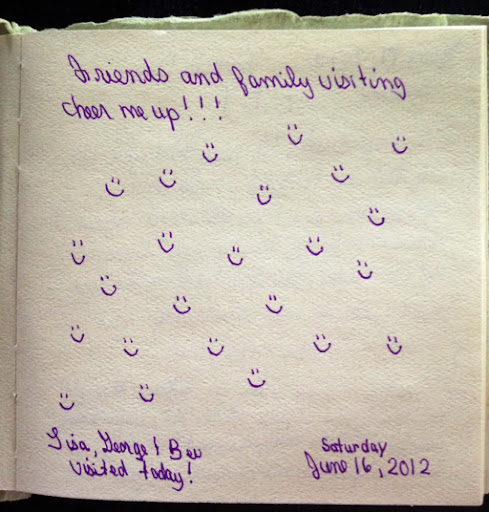 Friends and family visiting
cheer me up!!!
Lisa, George & Bev
visited today!
Saturday
June 16, 2012